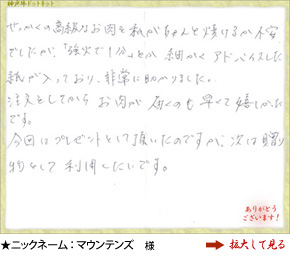 神戸牛ドットネット
せっかくの高級なお肉を私がちゃんと焼けるか不安
でしたが、「強火で1分」とか細かくアドバイスした
紙が入っており、非常に助かりました。
注文してからお肉が届くのも早くて嬉しかった
です。
今回はプレゼントとして頂いたのですが、次は贈り
物として利用したいです。
ありがとう
ございます!
★ニックネーム：マウンテンズ 様
拡大して見る